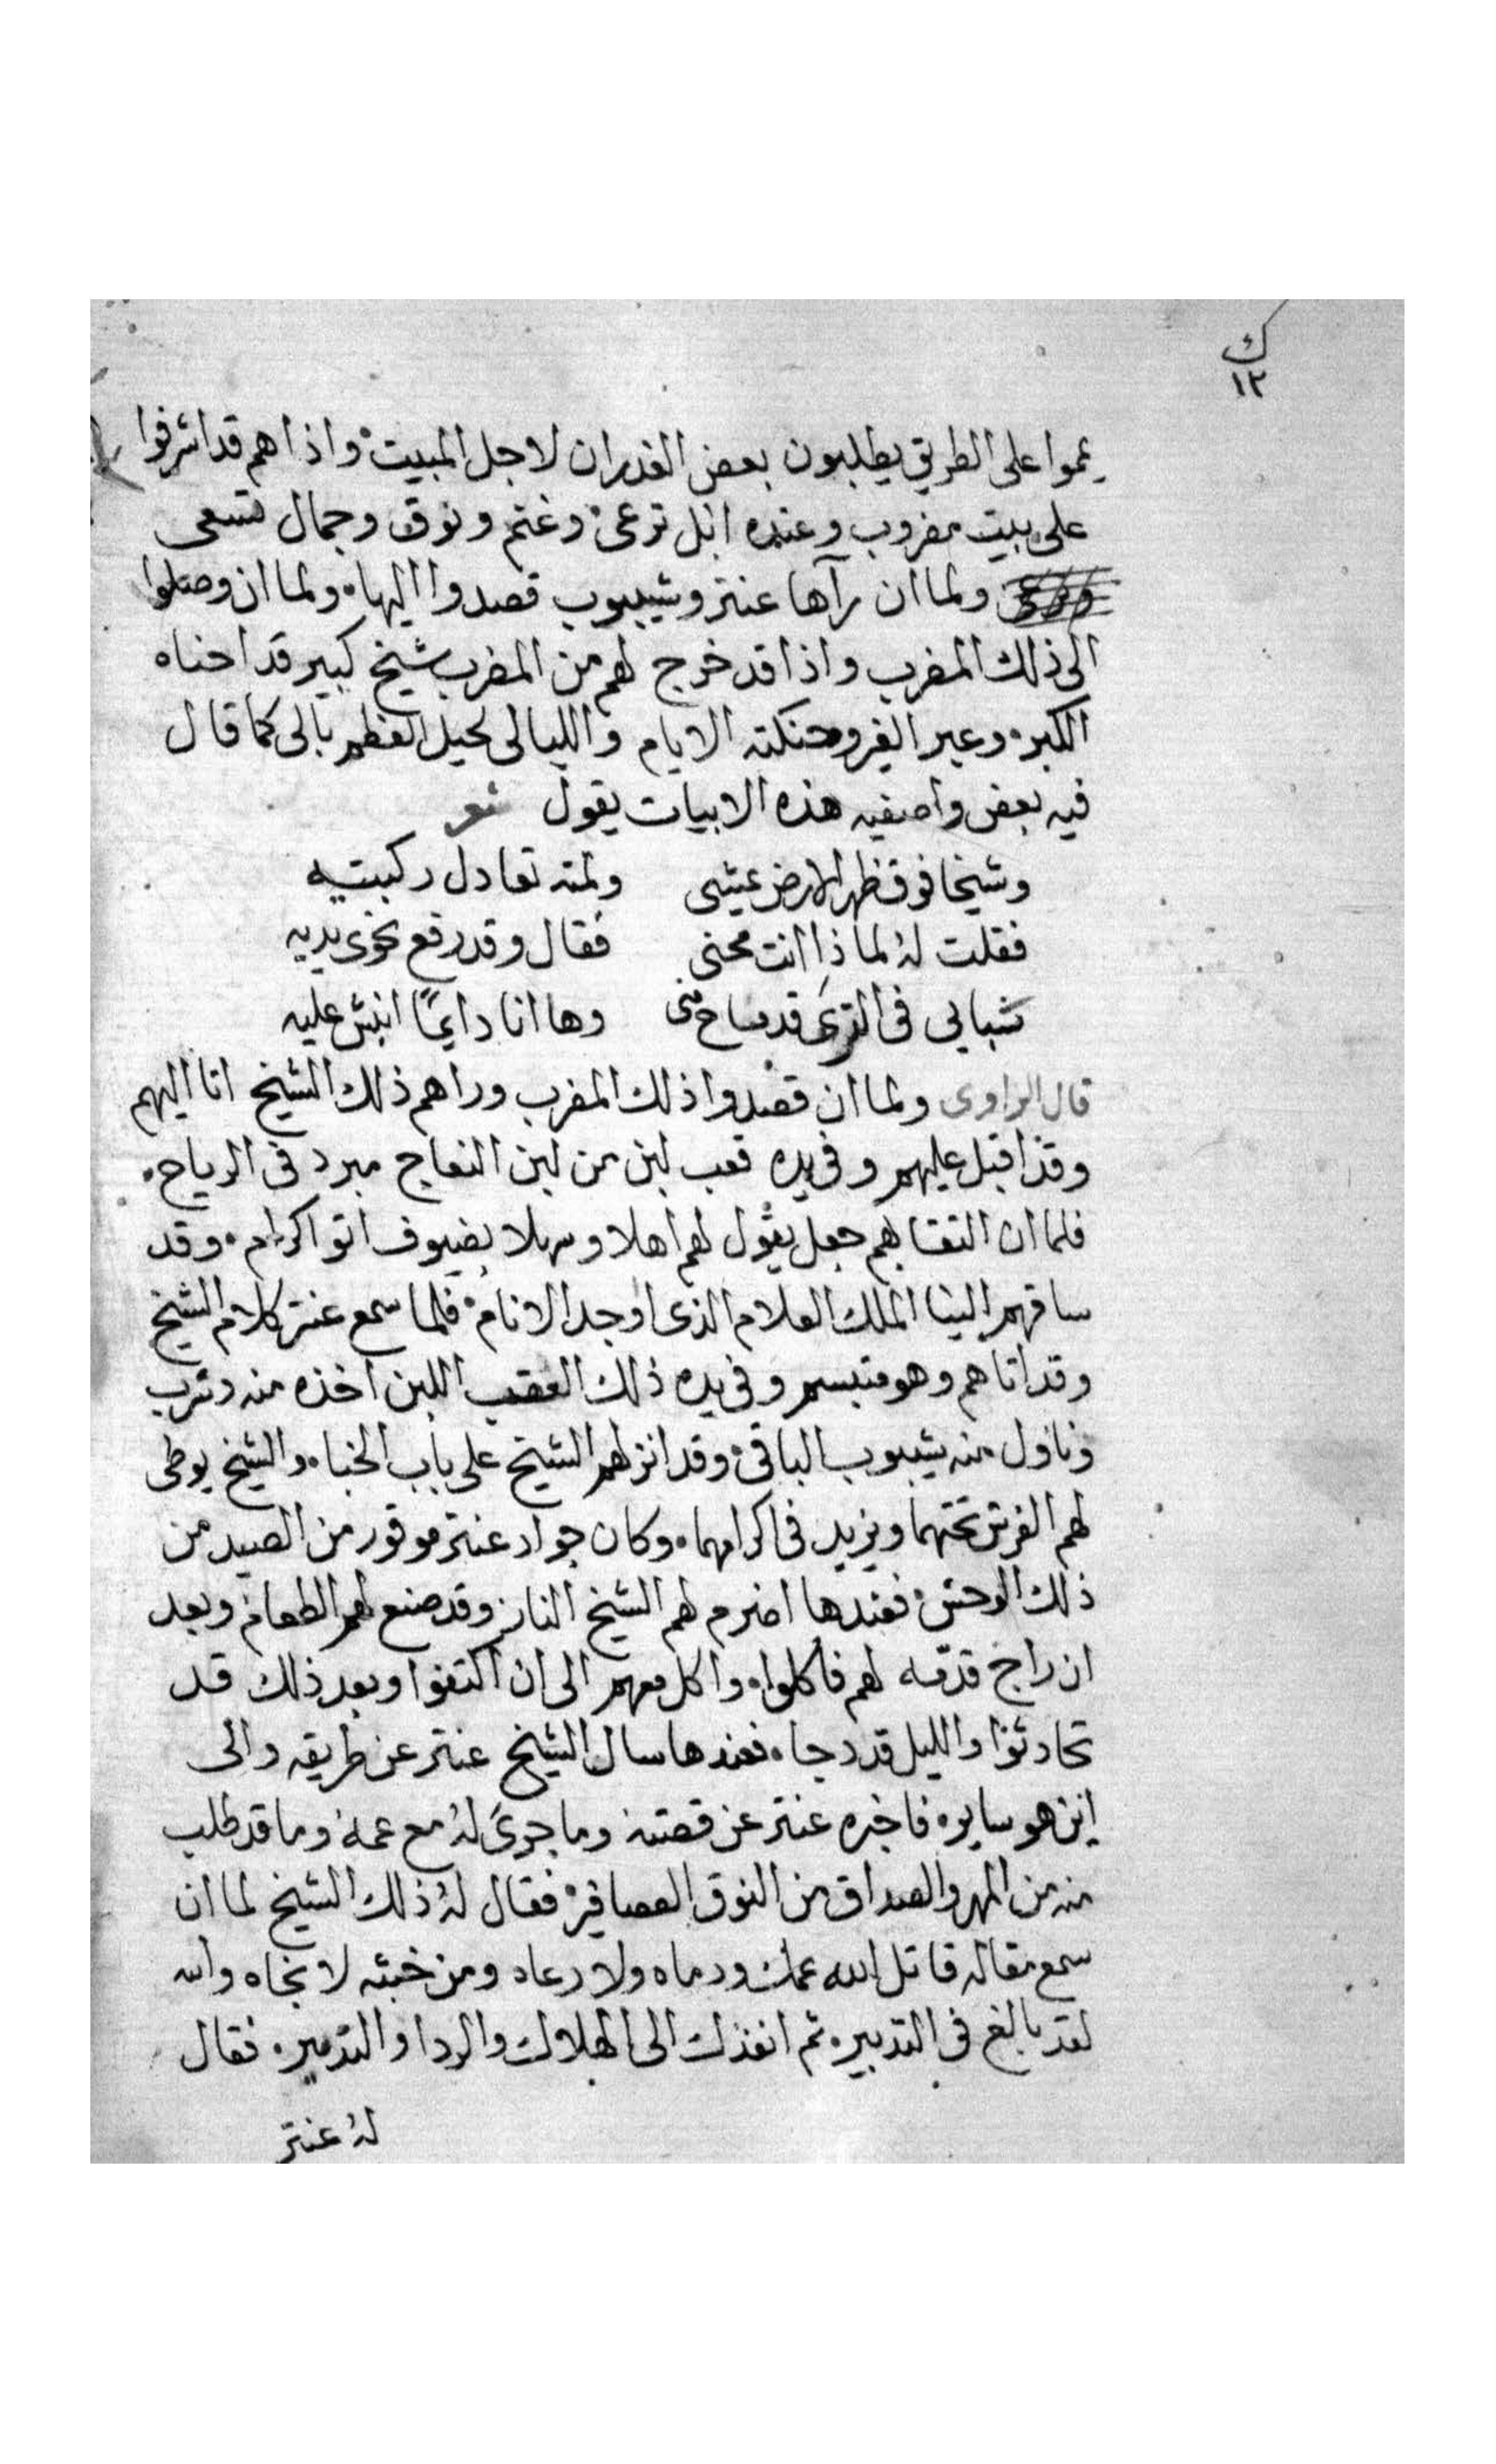 ك
١٢
يمموا على الطريق يطلبون بعض الغدران لاجل المبيت واذا هم قد اشرفوا
على بيت مضروب وعنده ابل ترعى وغنم ونوق وجمال تسعى
ولما ان رآها عنتر وشيبوب قصدوا اليها ولما ان وصلوا
الى ذلك المضرب واذا قد خرج لهم من المضرب شيخ كبير قد احناه
الكبر وعبر الغير وحنكته الايام والليالى نحيل العظم بالى كما قال
فيه بعض واصفيه هذه الابيات يقول شعر
وشيخا فوق ظهر الارض يمشى ولمته تعادل ركبتيه
فقلت له لماذا انت محنى فقال وقد رفع نحوى يديه
شبابى فى الثرى قد ضاع منى وها انا دايمًا انبش عليه
قال الراوى ولما ان قصدوا ذلك المضرب وراهم ذلك الشيخ اتا اليهم
وقد اقبل عليهم وفى يده قعب لبن من لبن النعاج مبرد فى الرياح
فلما ان التقاهم جعل يقول لهم اهلا وسهلا بضيوف اتوا كرام وقد
ساقهم الينا الملك العلام الذى اوجد الانام فلما سمع عنتر كلام الشيخ
وقد اتاهم وهو متبسم وفى يده ذلك القعب اللبن اخذه منه وشرب
وناول منه شيبوب الباقى وقد انزلهم الشيخ على باب الخبا والشيخ يوطى
لهم الفرش تحتهما ويزيد فى اكرامهما وكان جواد عنتر موقور من الصيد من
ذلك الوحش فعندها اضرم لهم الشيخ النار وقد صنع لهم الطعام وبعد
ان راج قدمه لهم فاكلوا واكل معهم الى ان اكتفوا وبعد ذلك قد
تحادثوا والليل قد دجا فعندها سال الشيخ عنتر عن طريقه والى
اين هو ساير فاخبره عنتر عن قصته وما جرى له مع عمه وما قد طلب
منه من المهر والصداق من النوق العصافير فقال له ذلك الشيخ لما ان
سمع مقاله قاتل الله عمك ودماه ولا رعاه ومن خبثه لا نجاه والله
لقد بالغ فى التدبير ثم انفذك الى الهلاك والردا والتدمير فقال
له عنتر